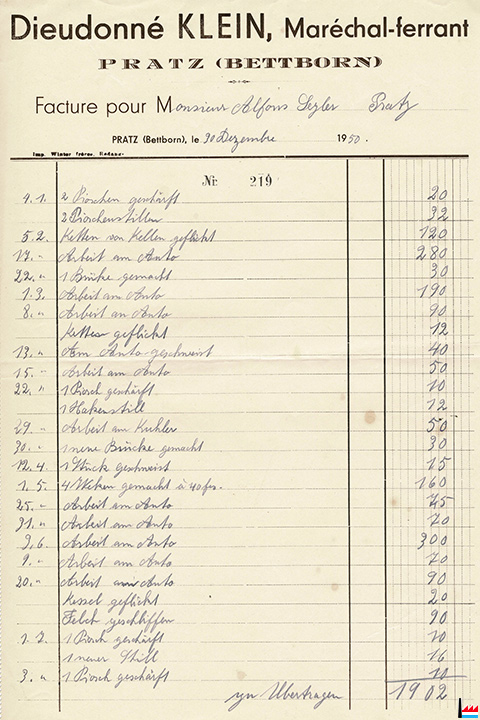 Dieudonné KLEIN, Maréchal-ferrant
PRATZ (BETTBORN)
Facture pour Monsieur Alfons Pratz
PRATZ (Bettborn), le 30 Dezembre 1950.
Imp. Winter frères, Redange
Nr. 219
4.1. 2 Pioschen geschärft 20
2 Pioschenstillen 32
5.2. Ketten von geflickt 120
17. " Arbeit am Auto 280
22. " 1 Brücke gemacht 30
1.3. Arbeit am Auto 190
8. " Arbeit an Auto 90
Ketten geflickt 12
13. " Am Auto geschweist 40
15. " Arbeit am Auto 50
22. " 1 Piosch geschärft 10
1 Hakenstill 12
29. " Arbeit am Kuhler 50
30. " 1 neue Brücke gemacht 30
12.4. 1 Stück geschweist 15
1.5. 4 gemacht à 40 frs. 160
25. " Arbeit am Auto 75
31. " Arbeit am Auto 70
2.6. Arbeit am Auto 300
9. " Arbeit am Auto 70
20. " Arbeit am Auto 90
Kessel geflickt 20
geschliffen 90
1.7. 1 Piosch geschärft 10
1 neuer Still 16
3. " 1 Piosch geschärft 10
zu Übertragen 1902